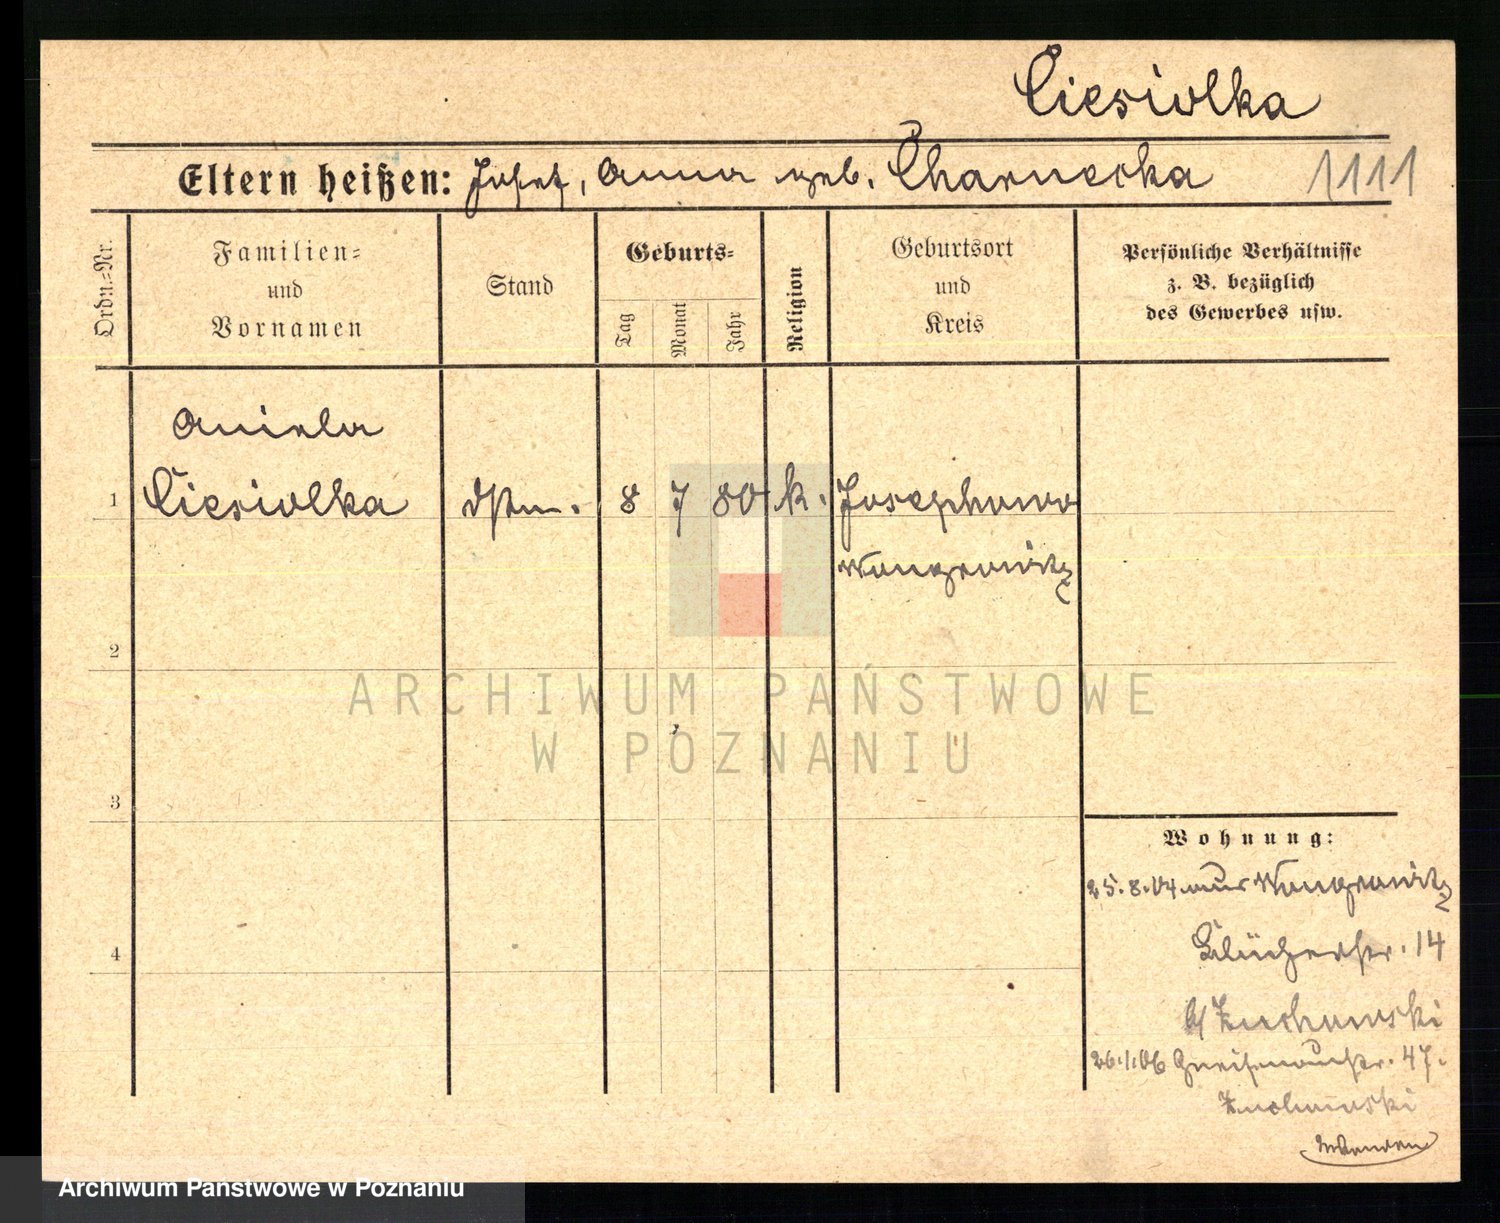 Ciesiolka
Eltern heißen: Josef, Anna geb. Charnecka
1111
Ordn.-Nr.
Familien-
und
Vornamen
Stand
Geburts-
Tag
Monat
Jahr
Religion
Geburtsort
und
Kreis
Persönliche Verhältnisse
z. B. bezüglich
des Gewerbes usw.
Aniela
1 Ciesiolka 8 7 80 k. Josephowo
Wongrowitz
2
ARCHIWUM PAŃSTWOWE
W POZNANIU
3
Wohnung:
25.8.04 aus Wongrowitz
4
Blücherstr. 14
b/ Zuchowski
26.1.06 Gneisenaustr. 47.
Zuchowski
Archiwum Państwowe w Poznaniu